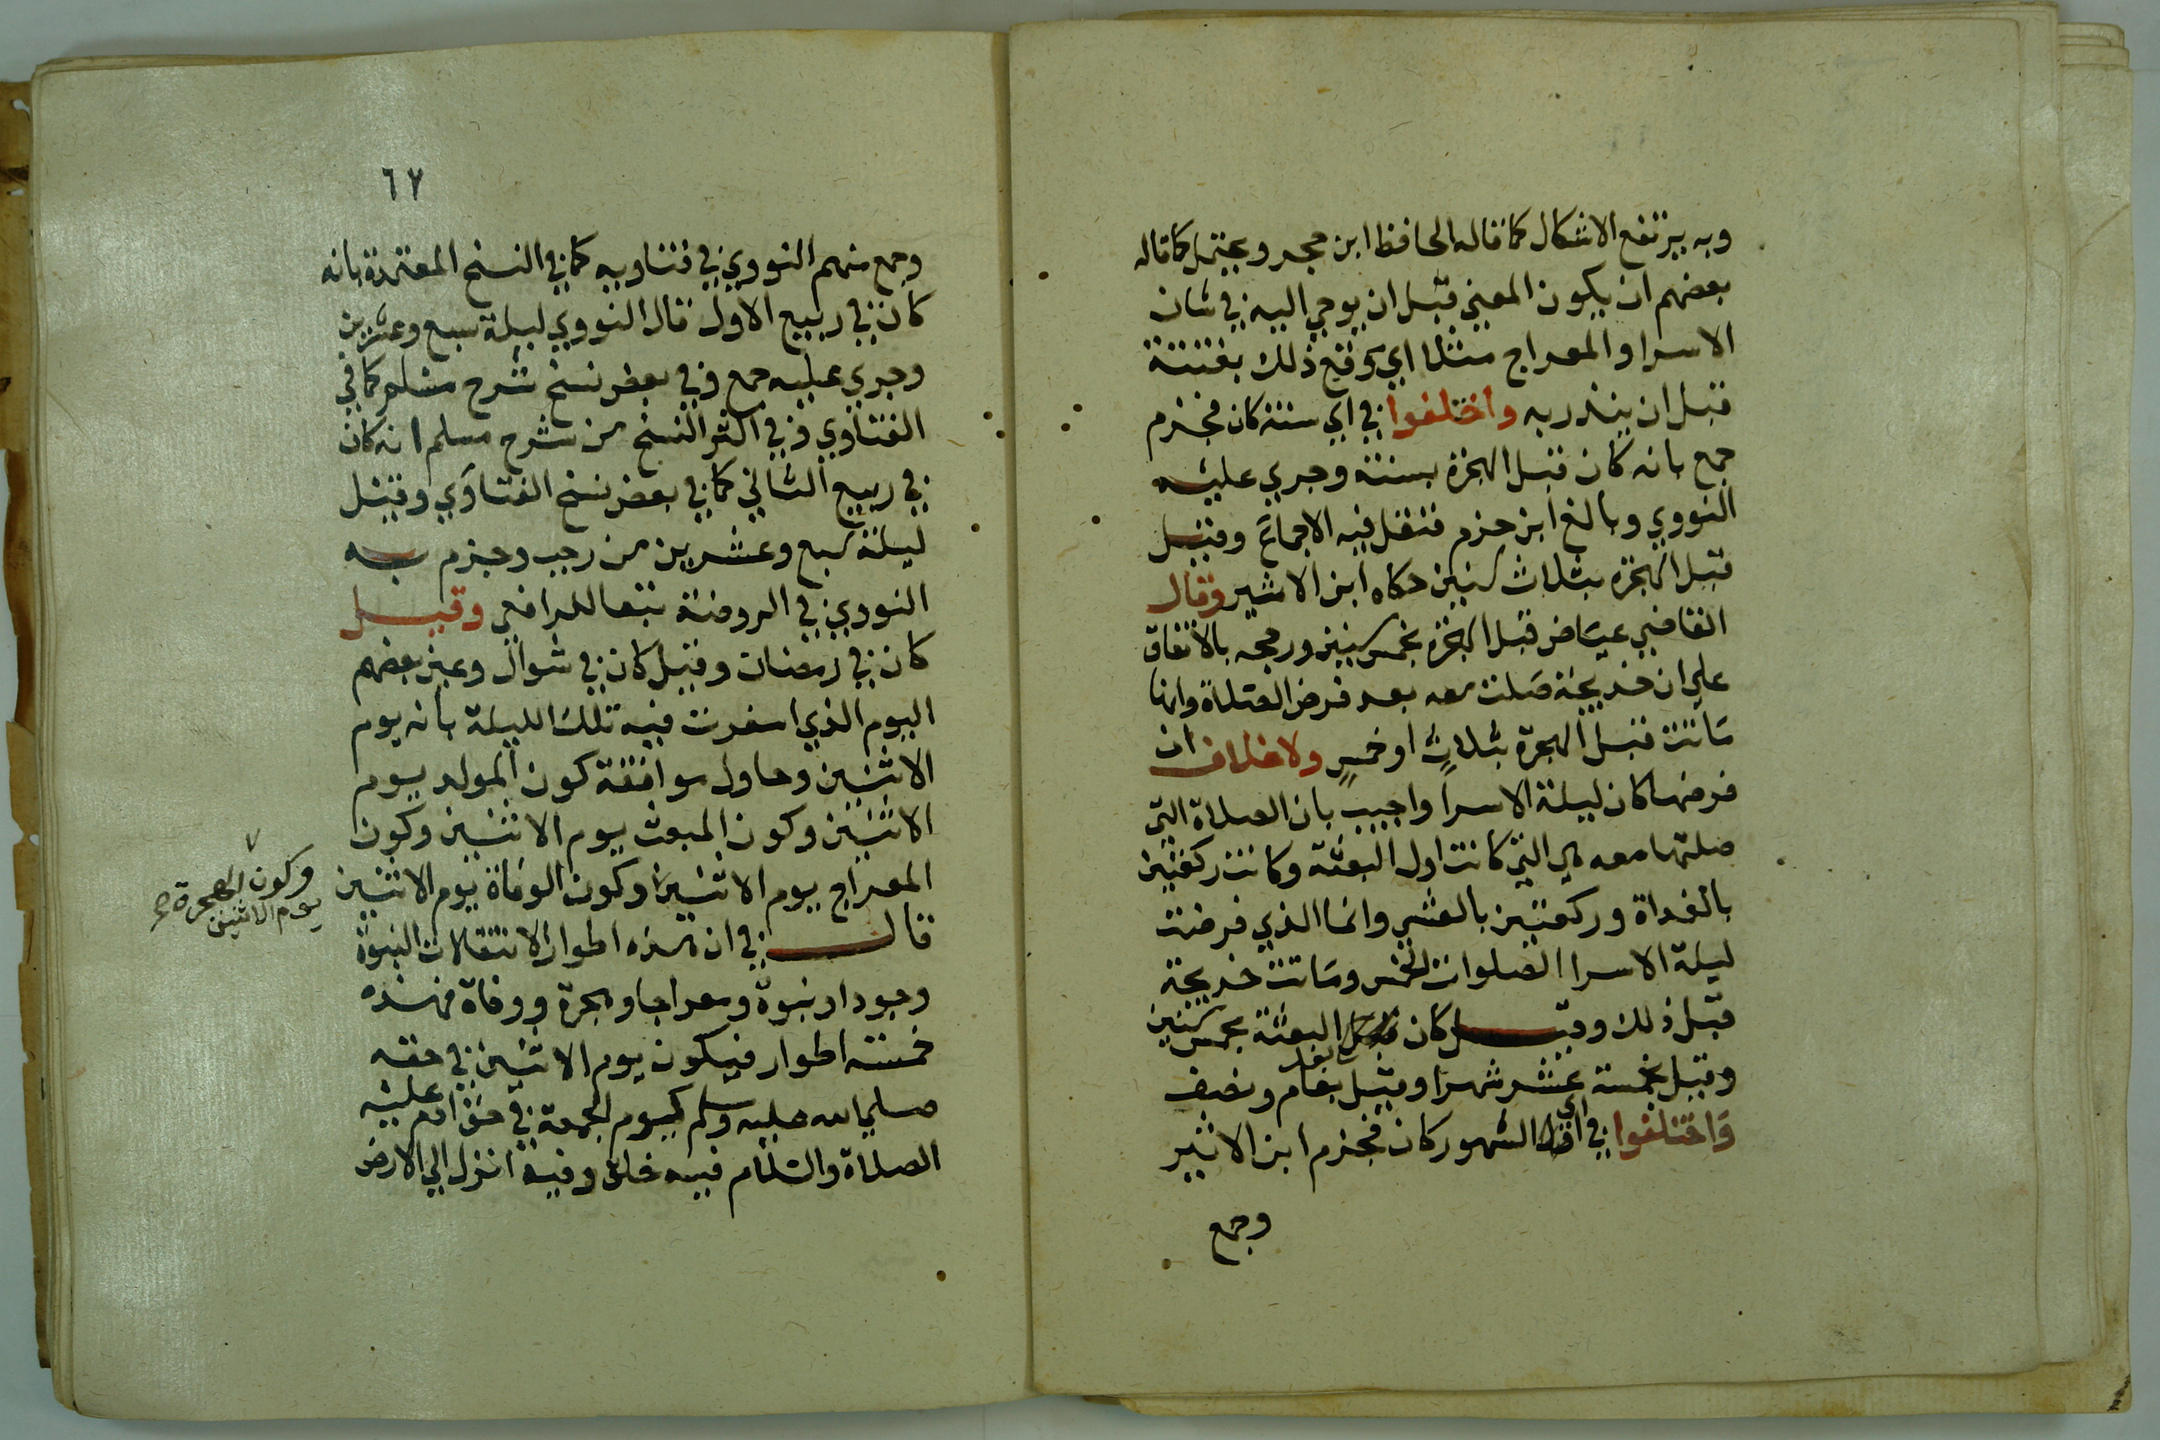 وبه يرتفع الاشكال كما قاله الحافظ ابن حجر ويحتمل كما قاله
بعضهم ان يكون المعني قبل ان يوحي اليه في شان
الاسرا والمعراج مثلا اي وقع ذلك بغتة
قبل ان ينذر به واختلفوا في اي سنة كان فجزم
جمع بانه كان قبل الهجرة بسنة وجري عليه
النووي وبالغ ابن حزم فنقل فيه الاجماع وقيل
قبل الهجرة بثلاث سنين حكاه ابن الاثير وقال
القاضي عياض قبل الهجرة بخمس سنين ورجحه بالاتفاق
علي ان خديجة صلت معه بعد فرض الصلاة وانها
ماتت قبل الهجرة بثلاث او خمس ولا خلاف ان
فرضها كان ليلة الاسرا واجيب بان الصلاة التي
صلتها معه هي التي كانت اول البعثة وكانت ركعتين
بالغداة وركعتين بالعشي وانما الذي فرضت
ليلة الاسرا الصلوات الخمس وماتت خديجة
قبل ذلك وقيل كان بعد البعثة بخمس سنين
وقيل بخمسة عشر شهرا وقيل بعام ونصف
واختلفوا في اي الشهور كان فجزم ابن الاثير
وجمع
٦٧
وجمع منهم النووي في فتاويه كما في النسخ المعتمدة بانه
كان في ربيع الاول قال النووي ليلة سبع وعشرين
وجري عليه جمع وفي بعض نسخ شرح مسلم كما في
الفتاوي وفي اكثر النسخ من شرح مسلم انه كان
في ربيع الثاني كما في بعض نسخ الفتاوي وقيل
ليلة سبع وعشرين من رجب وجزم به
النووي في الروضة تبعا للرافعي وقيل
كان في رمضان وقيل كان في شوال وعين بعضهم
اليوم الذي اسفرت فيه تلك الليلة بانه يوم
الاثنين وحاول موافقة كون المولد يوم
الاثنين وكون المبعث يوم الاثنين وكون
المعراج يوم الاثنين وكون الوفاة يوم الاثنين
وكون الهجرة
يوم الاثنين
قال في ان هذه اطوار الانتقالات النبوة
وجودا ونبوة ومعراجا وهجرة ووفاة فهذه
خمسة اطوار فيكون يوم الاثنين في حقه
صلي الله عليه وسلم كيوم الجمعة في حق ادم عليه
الصلاة والسلام فيه خلق وفيه انزل الي الارض